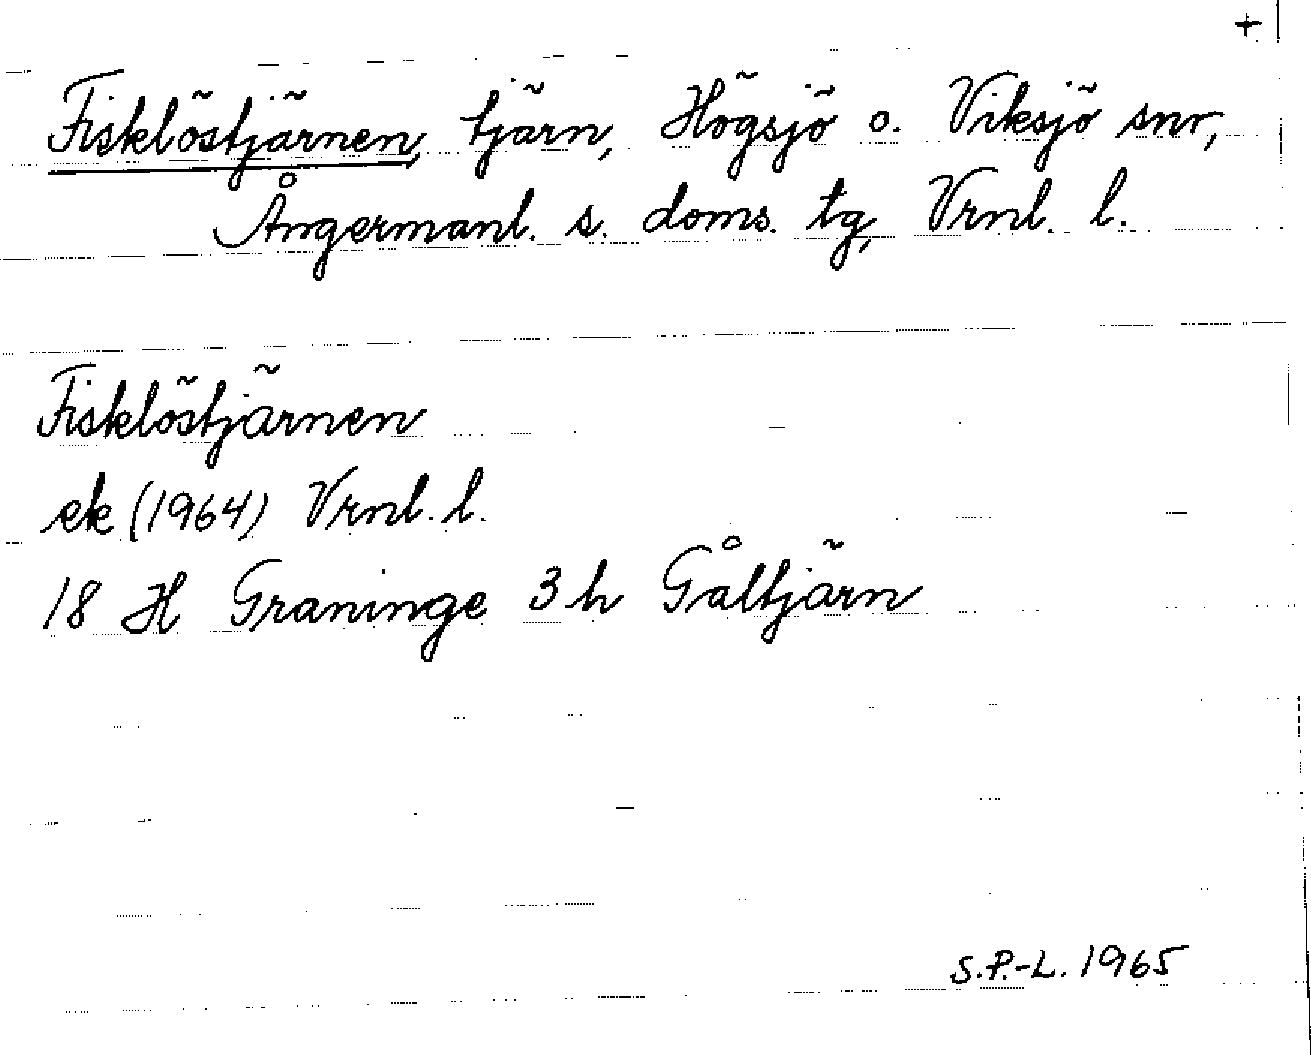 +
Fisklöstjärnen, tjärn, Högsjö o. Viksjö snr,
Ångermanl. s. doms. tg, Vrnl. l.
Fisklöstjärnen
ek (1964) Vrnl. l.
18 H Graninge 3 h Gåltjärn
S.P.-L. 1965